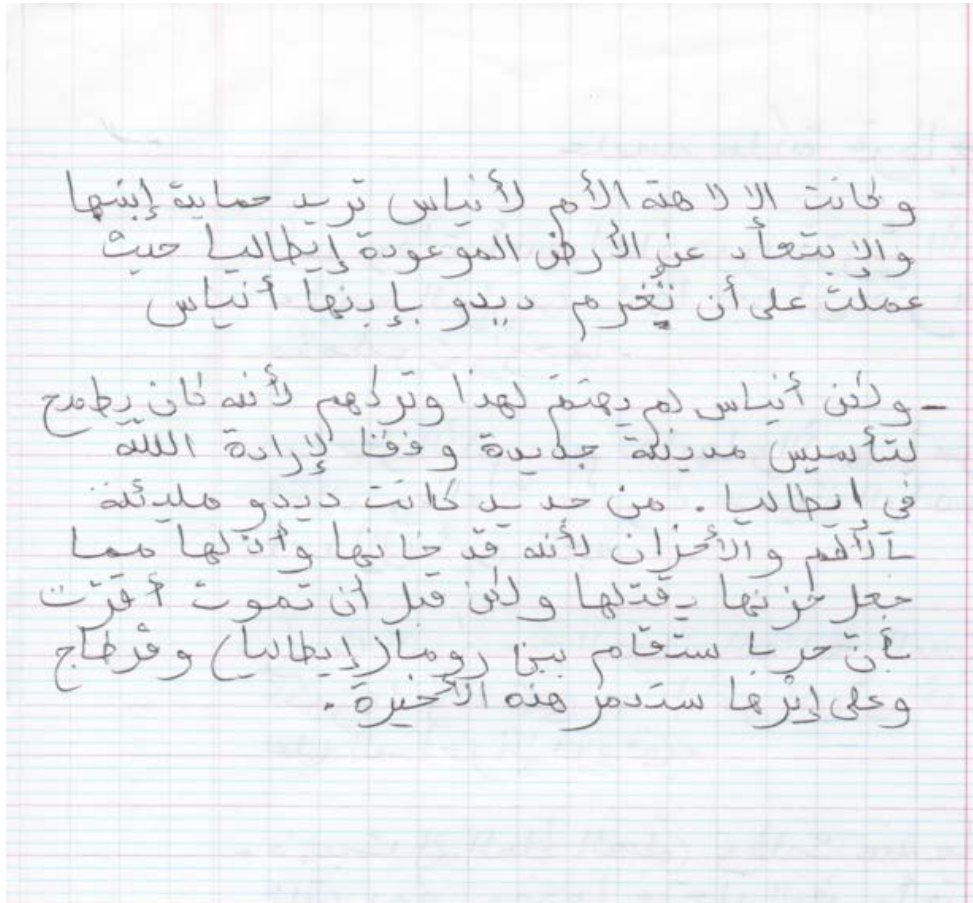 وكانت الالاهة الأم لأنياس تريد حماية إبنها
والإبتعاد عن الأرض الموعودة إيطاليا حيث
عملت على أن تُغرم ديدو بإبنها أنياس
- ولكن أنياس لم يهتم لهذا وتركهم لأنه كان يطمح
لتأسيس مدينة جديدة وفقا لإرادة الله
في ايطاليا . من جديد كانت ديدو مليئة
بالألم والأحزان لأنه قد خانها وأذلها مما
جعل حزنها يقتلها ولكن قبل أن تموت أقرّت
بأن حربا ستقام بين روما (إيطاليا) وقرطاج
وعلى إثرها ستدمر هذه الأخيرة .